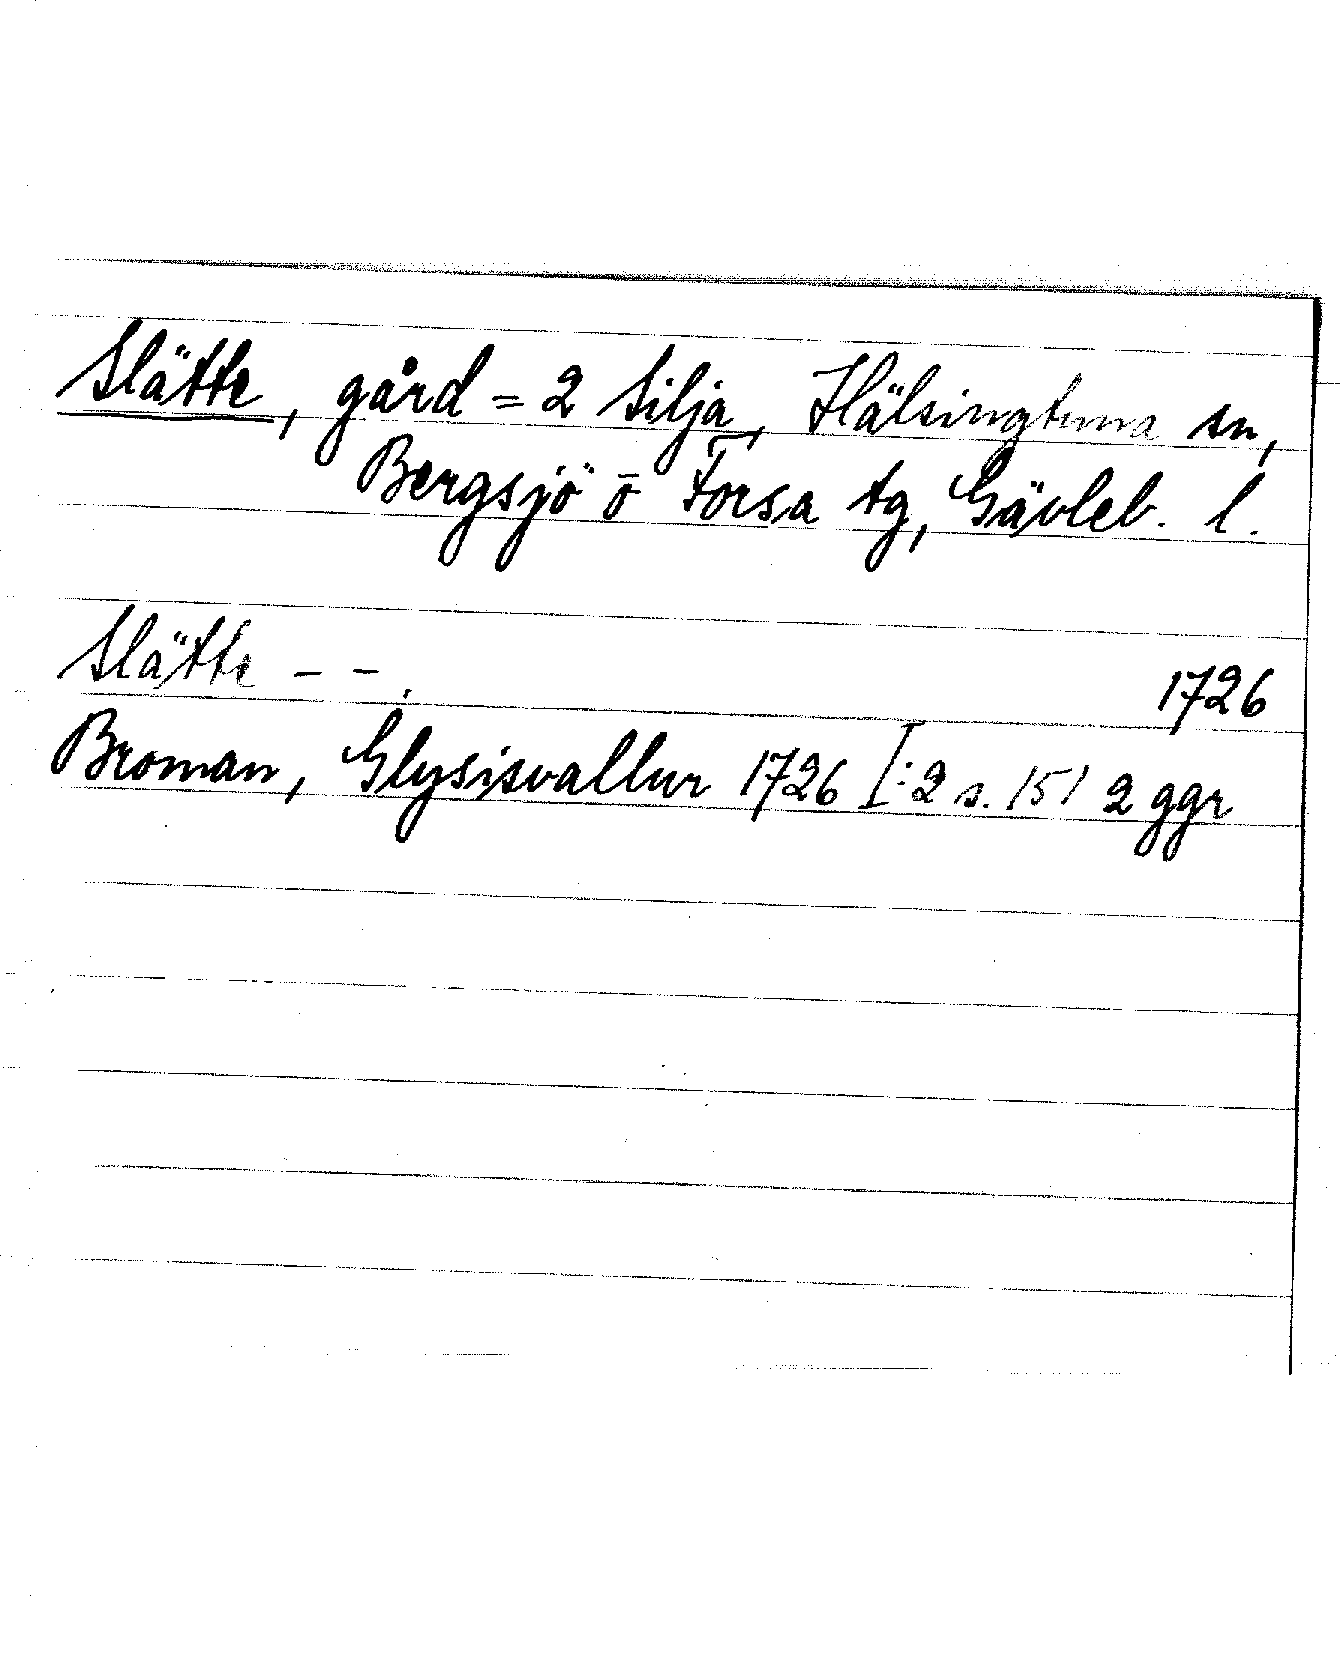 Slätte, gård = 2 Silja, Hälsingtuna sn,
Bergsjö o Forsa tg, Gävleb. l.
Slätte – – 1726
Broman, Glysisvallur 1726 I:2 s. 151 2 ggr